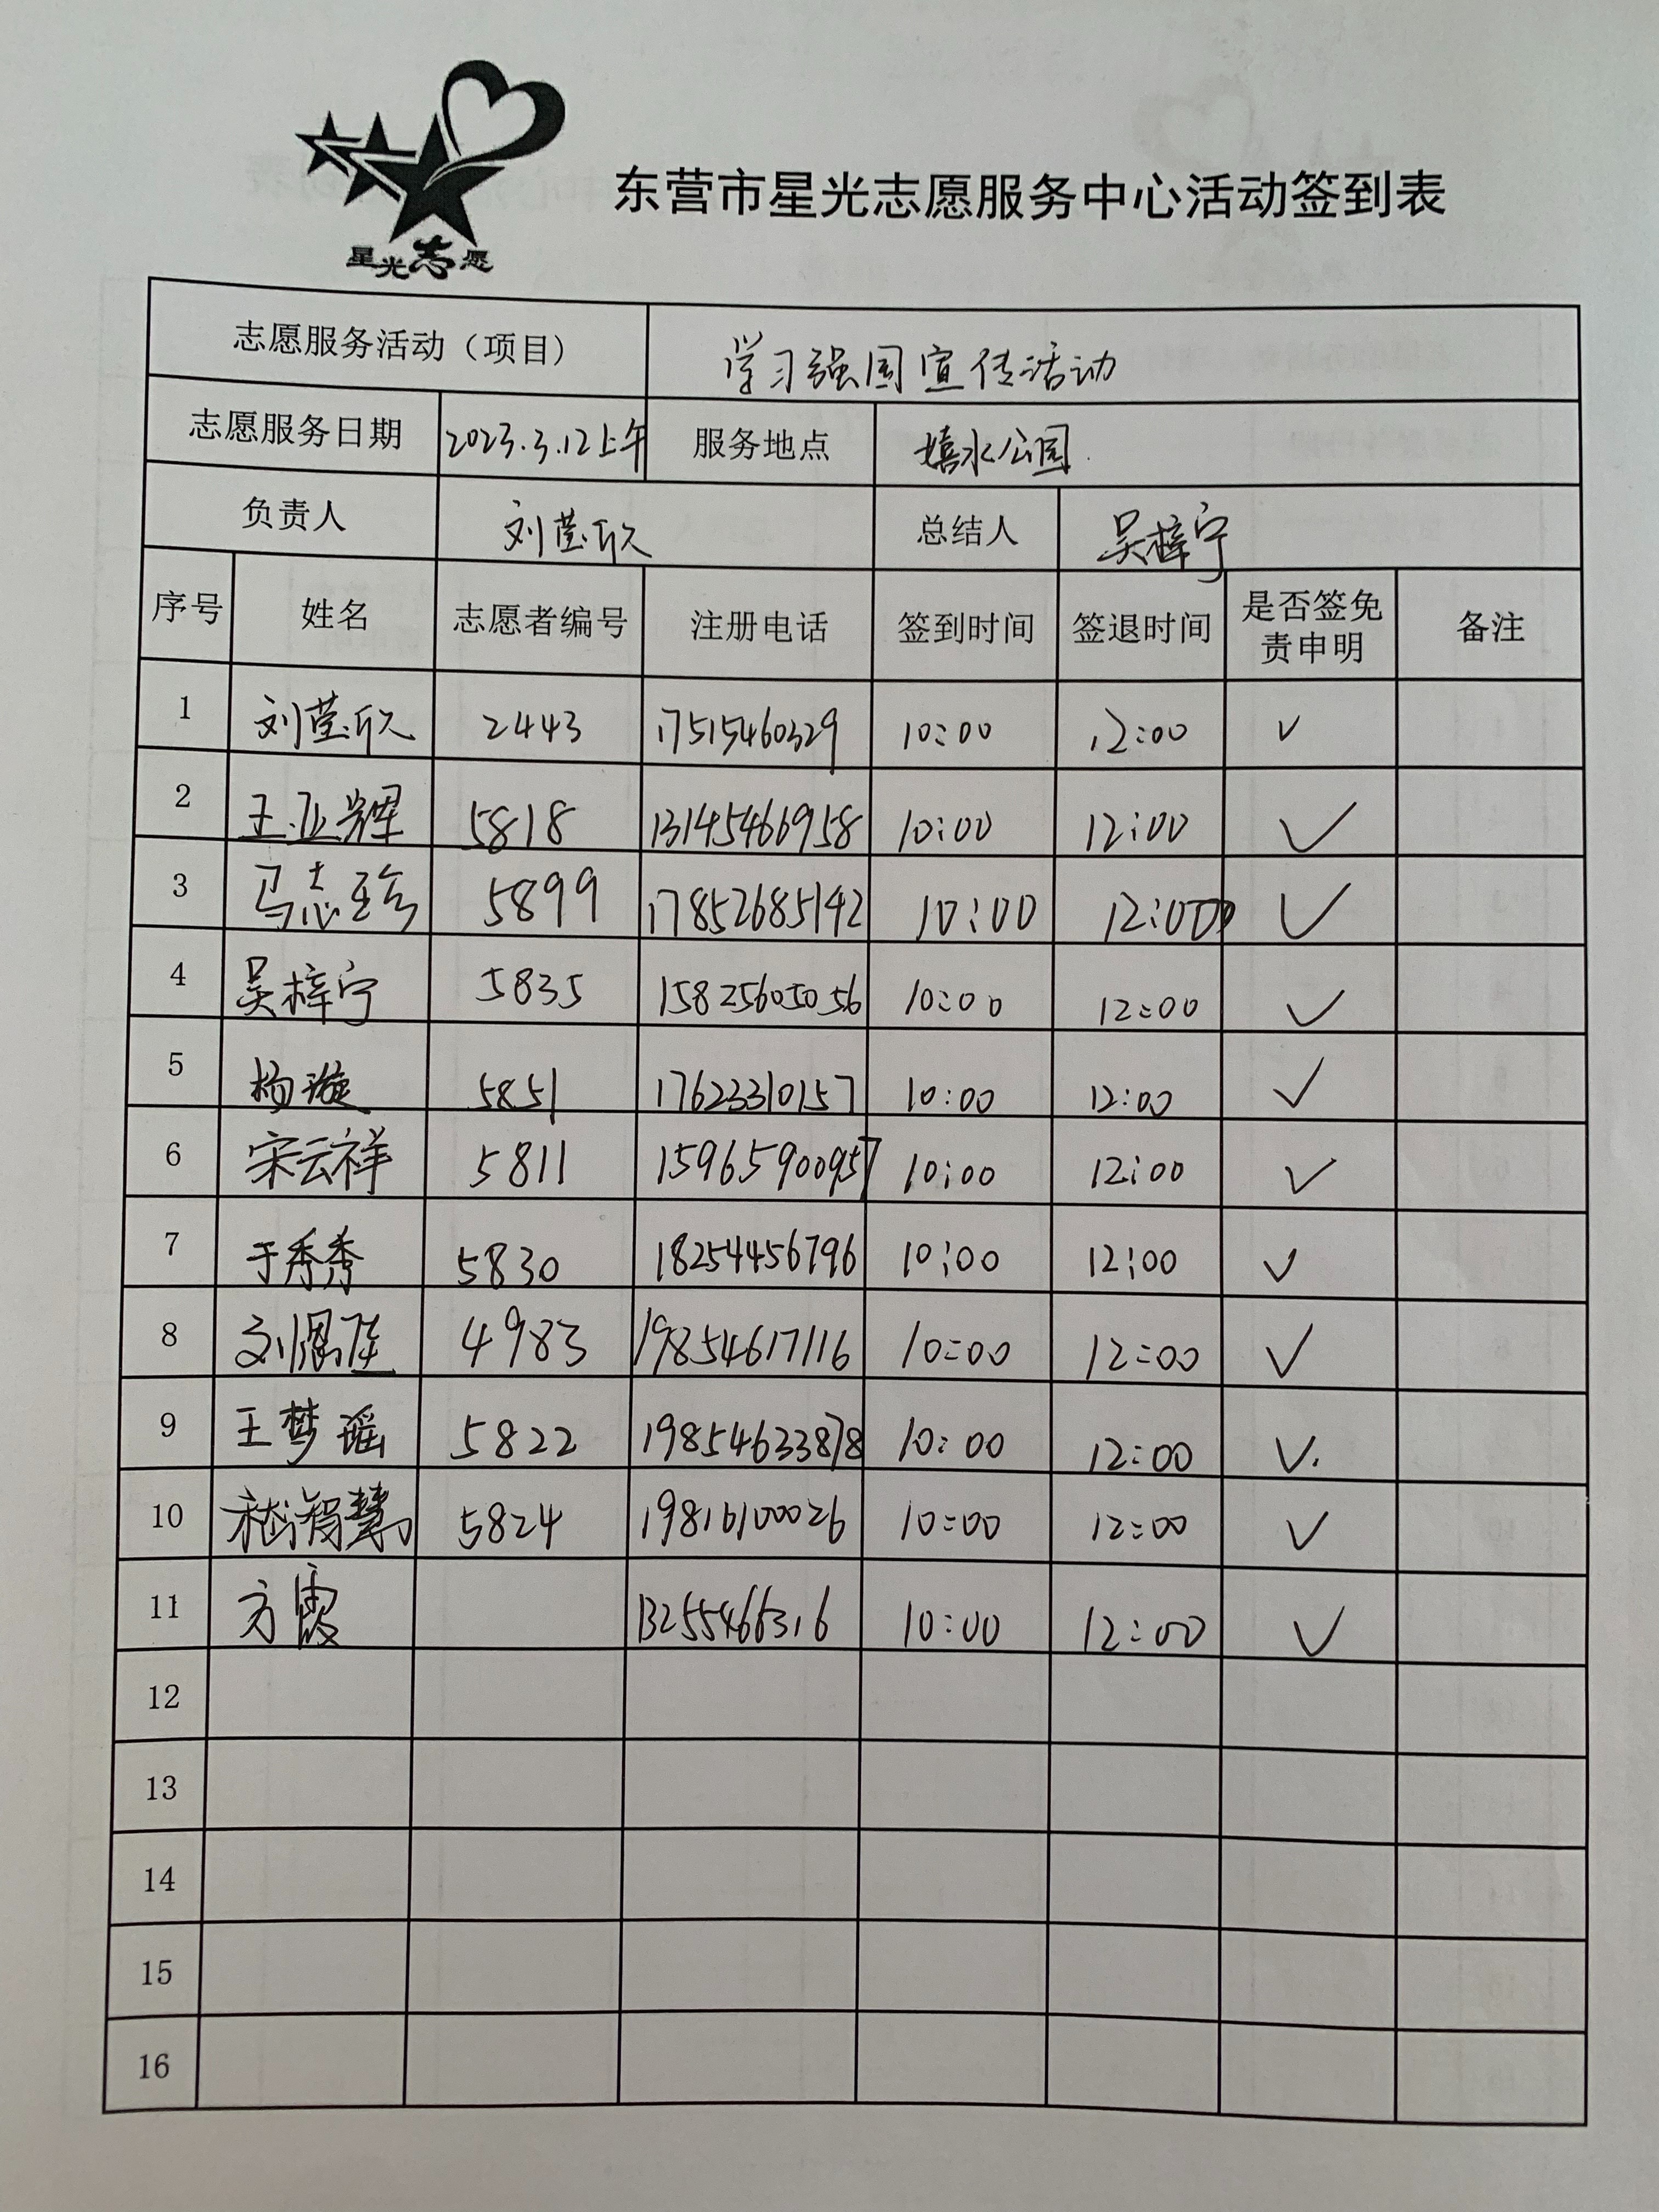 星光志愿
东营市星光志愿服务中心活动签到表
志愿服务活动（项目） 学习强国宣传活动
志愿服务日期 2023.3.12上午 服务地点 嬉水公园
负责人 刘莹欣 总结人 吴梓宁
序号 姓名 志愿者编号 注册电话 签到时间 签退时间 是否签免责申明 备注
1 刘莹欣 2443 17515460329 10:00 12:00 ✓
2 王亚辉 5818 13145466958 10:00 12:00 ✓
3 马志珍 5899 17852685142 10:00 12:00 ✓
4 吴梓宁 5835 15825605056 10:00 12:00 ✓
5 杨璇 5851 17623310157 10:00 12:00 ✓
6 宋云祥 5811 15965900957 10:00 12:00 ✓
7 于秀秀 5830 18254456796 10:00 12:00 ✓
8 刘 4983 19854617116 10:00 12:00 ✓
9 王梦瑶 5822 19854633878 10:00 12:00 ✓
10 嵇智慧 5824 19816100026 10:00 12:00 ✓
11 方霞 13255466316 10:00 12:00 ✓
12
13
14
15
16